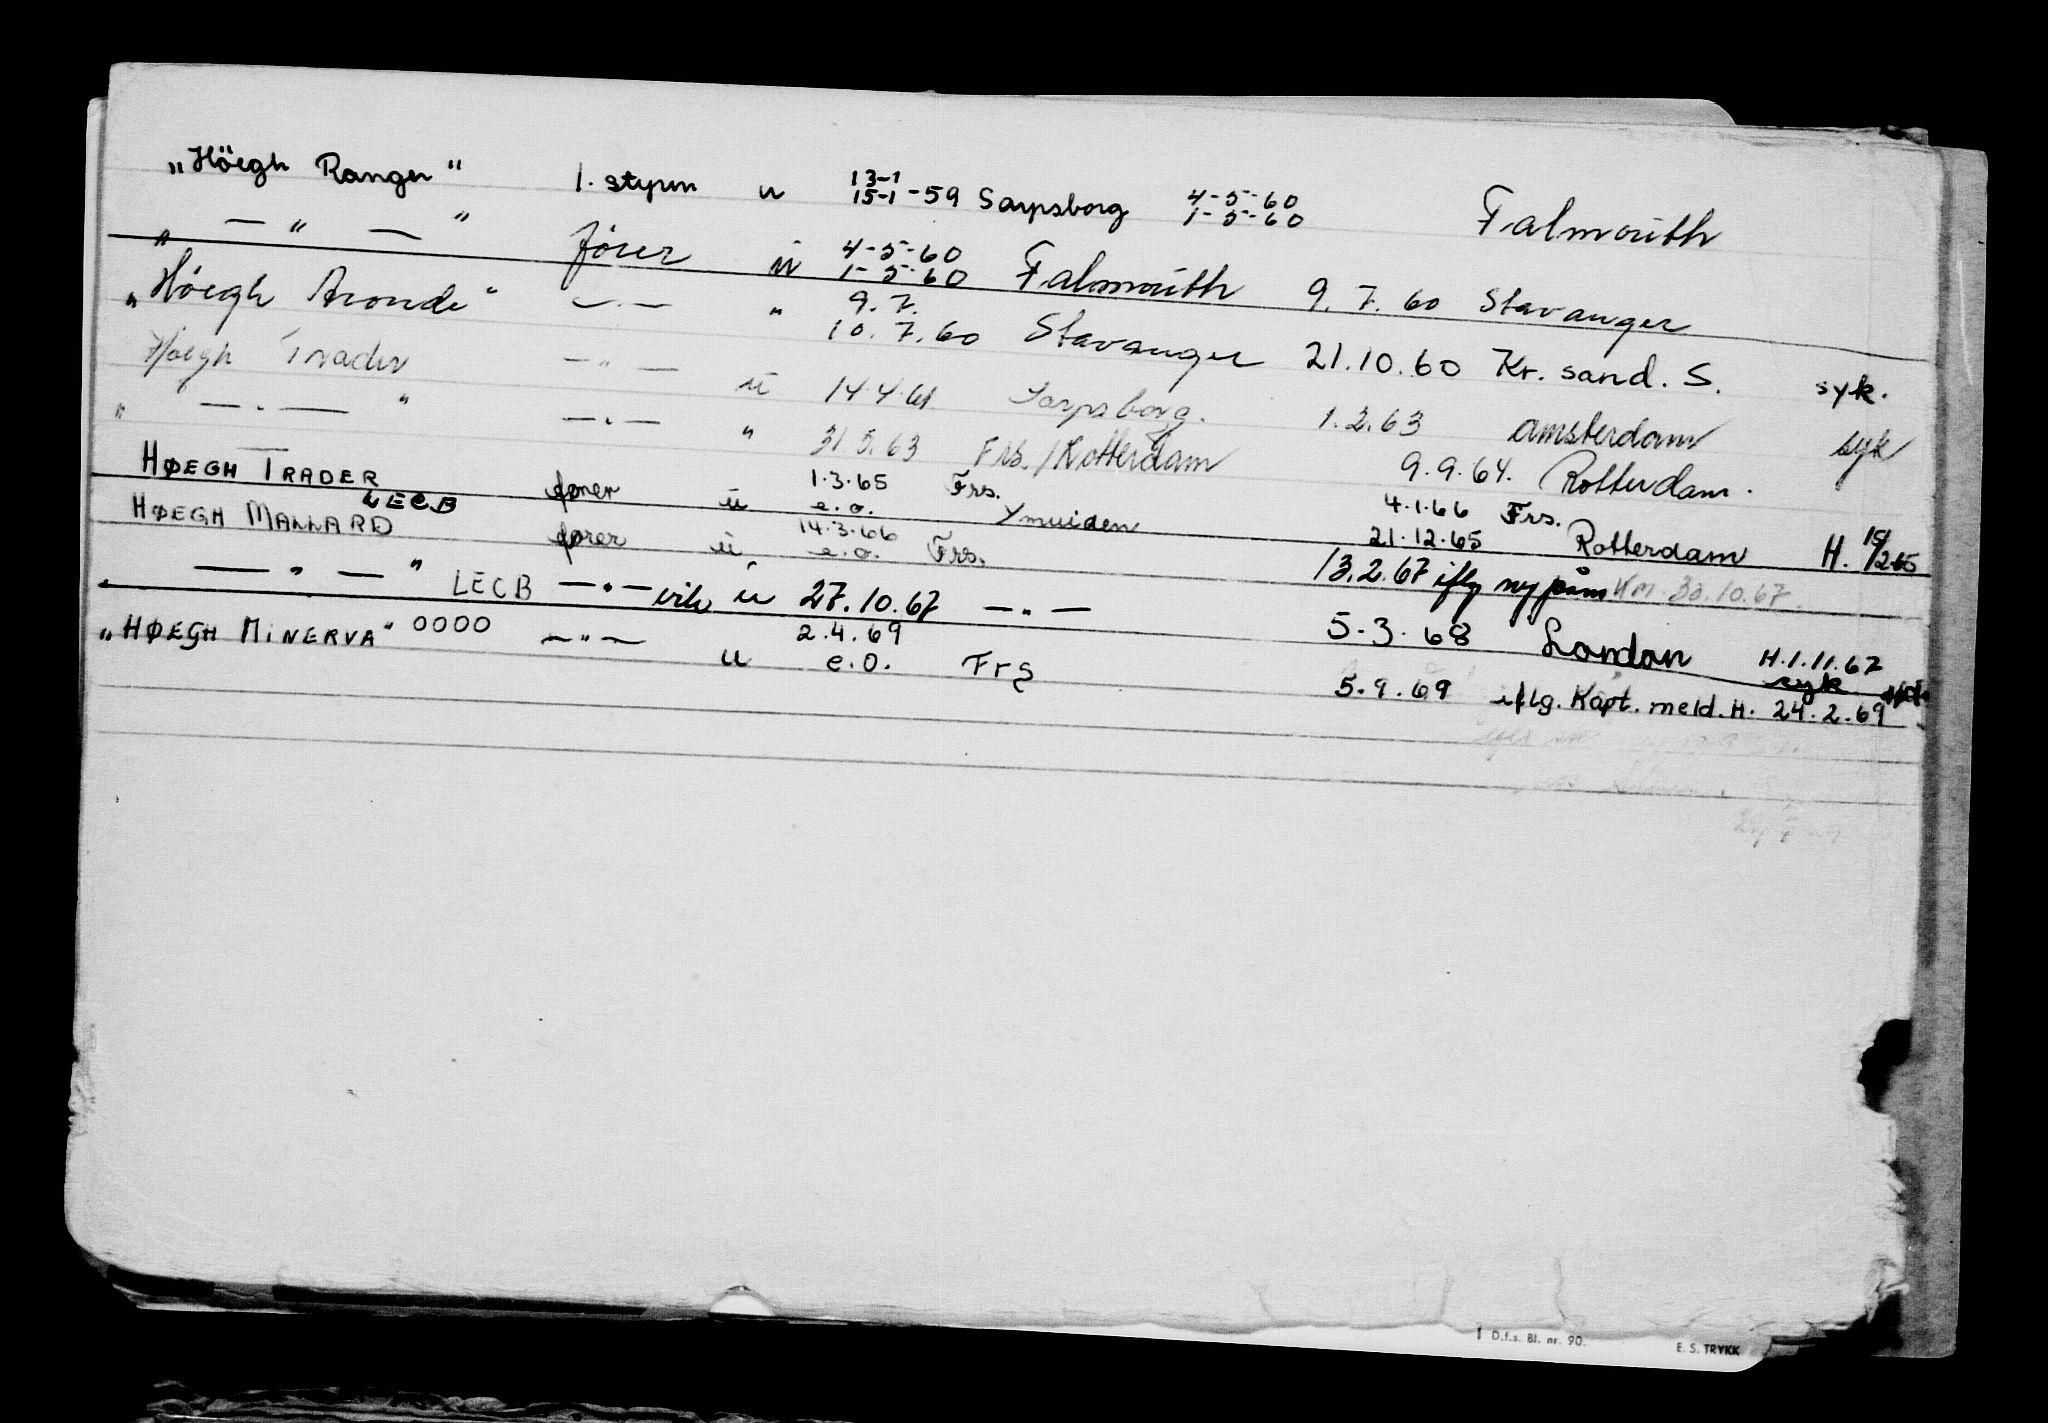 „Höegh Ranger" 1. styrm u 13-1 15-1-59 Sarpsborg 4-5-60 1-5-60 Falmouth
„ — " — " fører u 4-5-60 1-5-60 Falmouth 9.7.60 Stavanger
„Høegh Aronde" — . — " 9.7. 10.7.60 Stavanger 21.10.60 Kr. sand. S. syk.
Høegh Trader — " — u 14.4.61 Sarpsborg. 1.2.63 Amsterdam syk
„ — . — " — . — " 31.5.63 Frs. / Rotterdam 9.9.64. Rotterdam.
HØEGH TRADER fører u 1.3.65 e.o. Frs. Ymuiden 4.1.66 Frs. 21.12.65 Rotterdam H. 15/2.65
HØEGH MALLARD LECB fører u 14.3.66 e.o. Frs. 13.2.67 iflg ny påm HM. 30.10.67.
— " — " LECB — . — u 27.10.67 — . — 5-3-68 London H.1.11.67 syk
„HØEGH MINERVA" OOOO — " — u 2.4.69 e.o. Frs 5.9.69 iflg. Kapt. meld. H. 24.2.69
D.f.s. Bl. nr. 90.
E. S. TRYKK